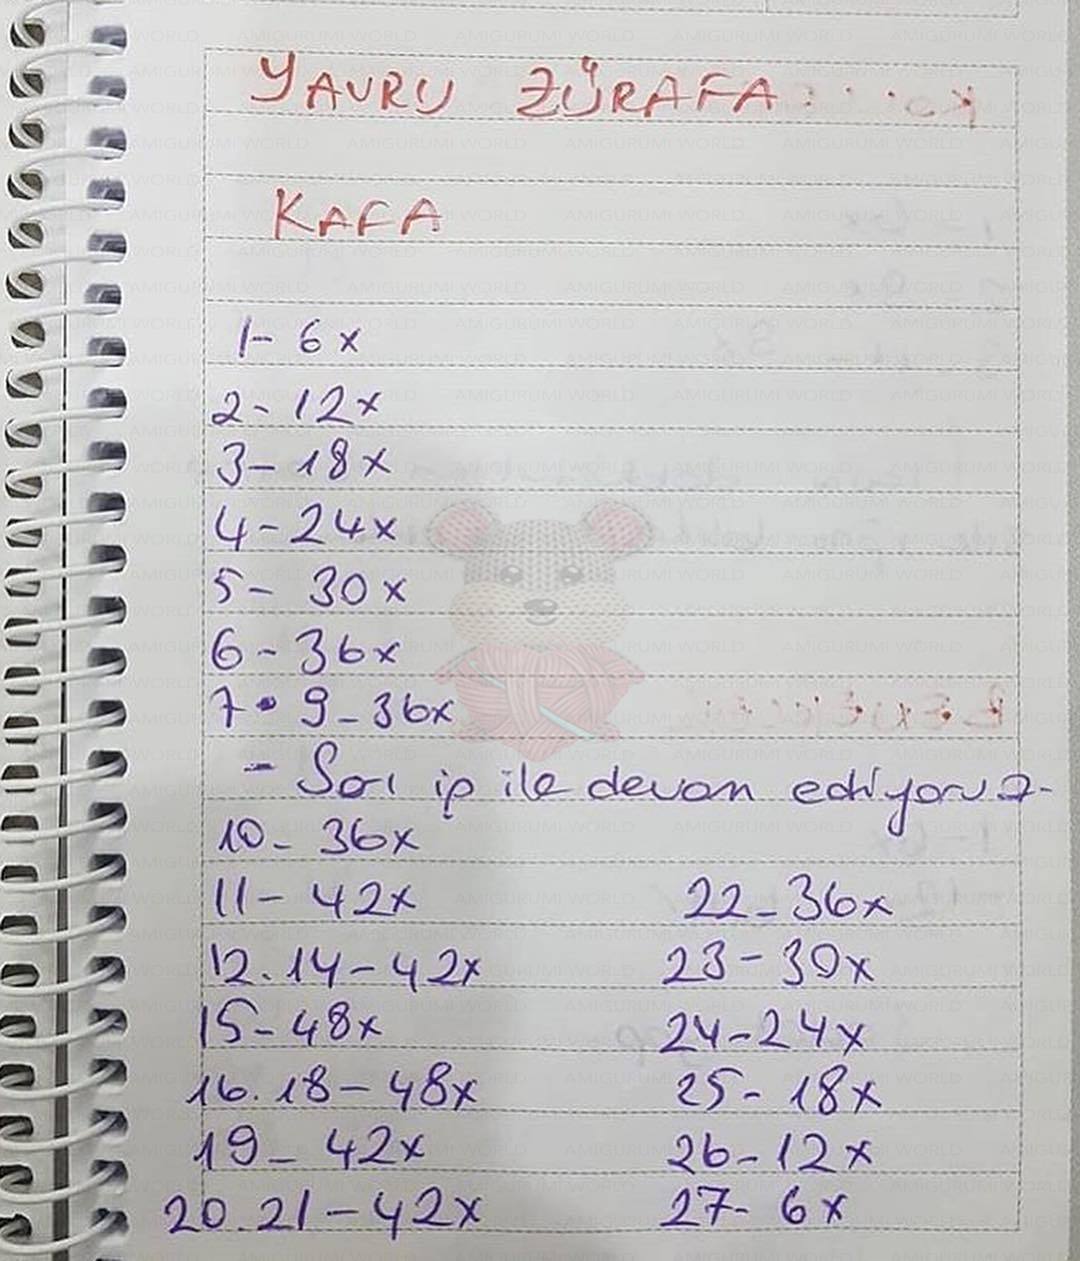 YAVRU ZÜRAFA
KAFA
1- 6x
2- 12x
3- 18x
4- 24x
5- 30x
6- 36x
7 • 9 - 36x
- Sarı ip ile devam ediyoruz.
10- 36x
11- 42x
12.14- 42x
15- 48x
16.18- 48x
19- 42x
20.21- 42x
22- 36x
23- 30x
24- 24x
25- 18x
26- 12x
27- 6x
AMIGURUMI WORLD